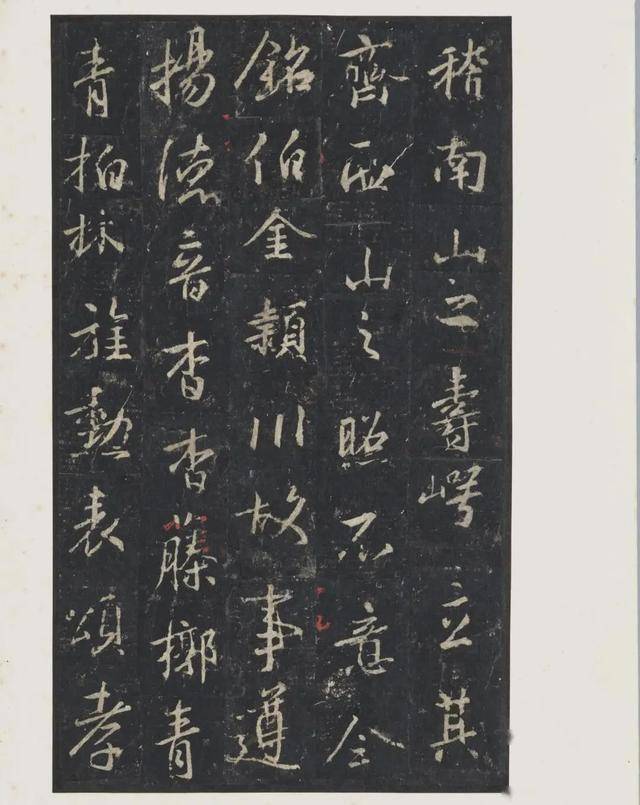 稽南山之壽崿立其
齊西山之照不意
銘伯金潁川故事遵
揚德音杳杳藤槨青
青柏林旌勳表頌孝